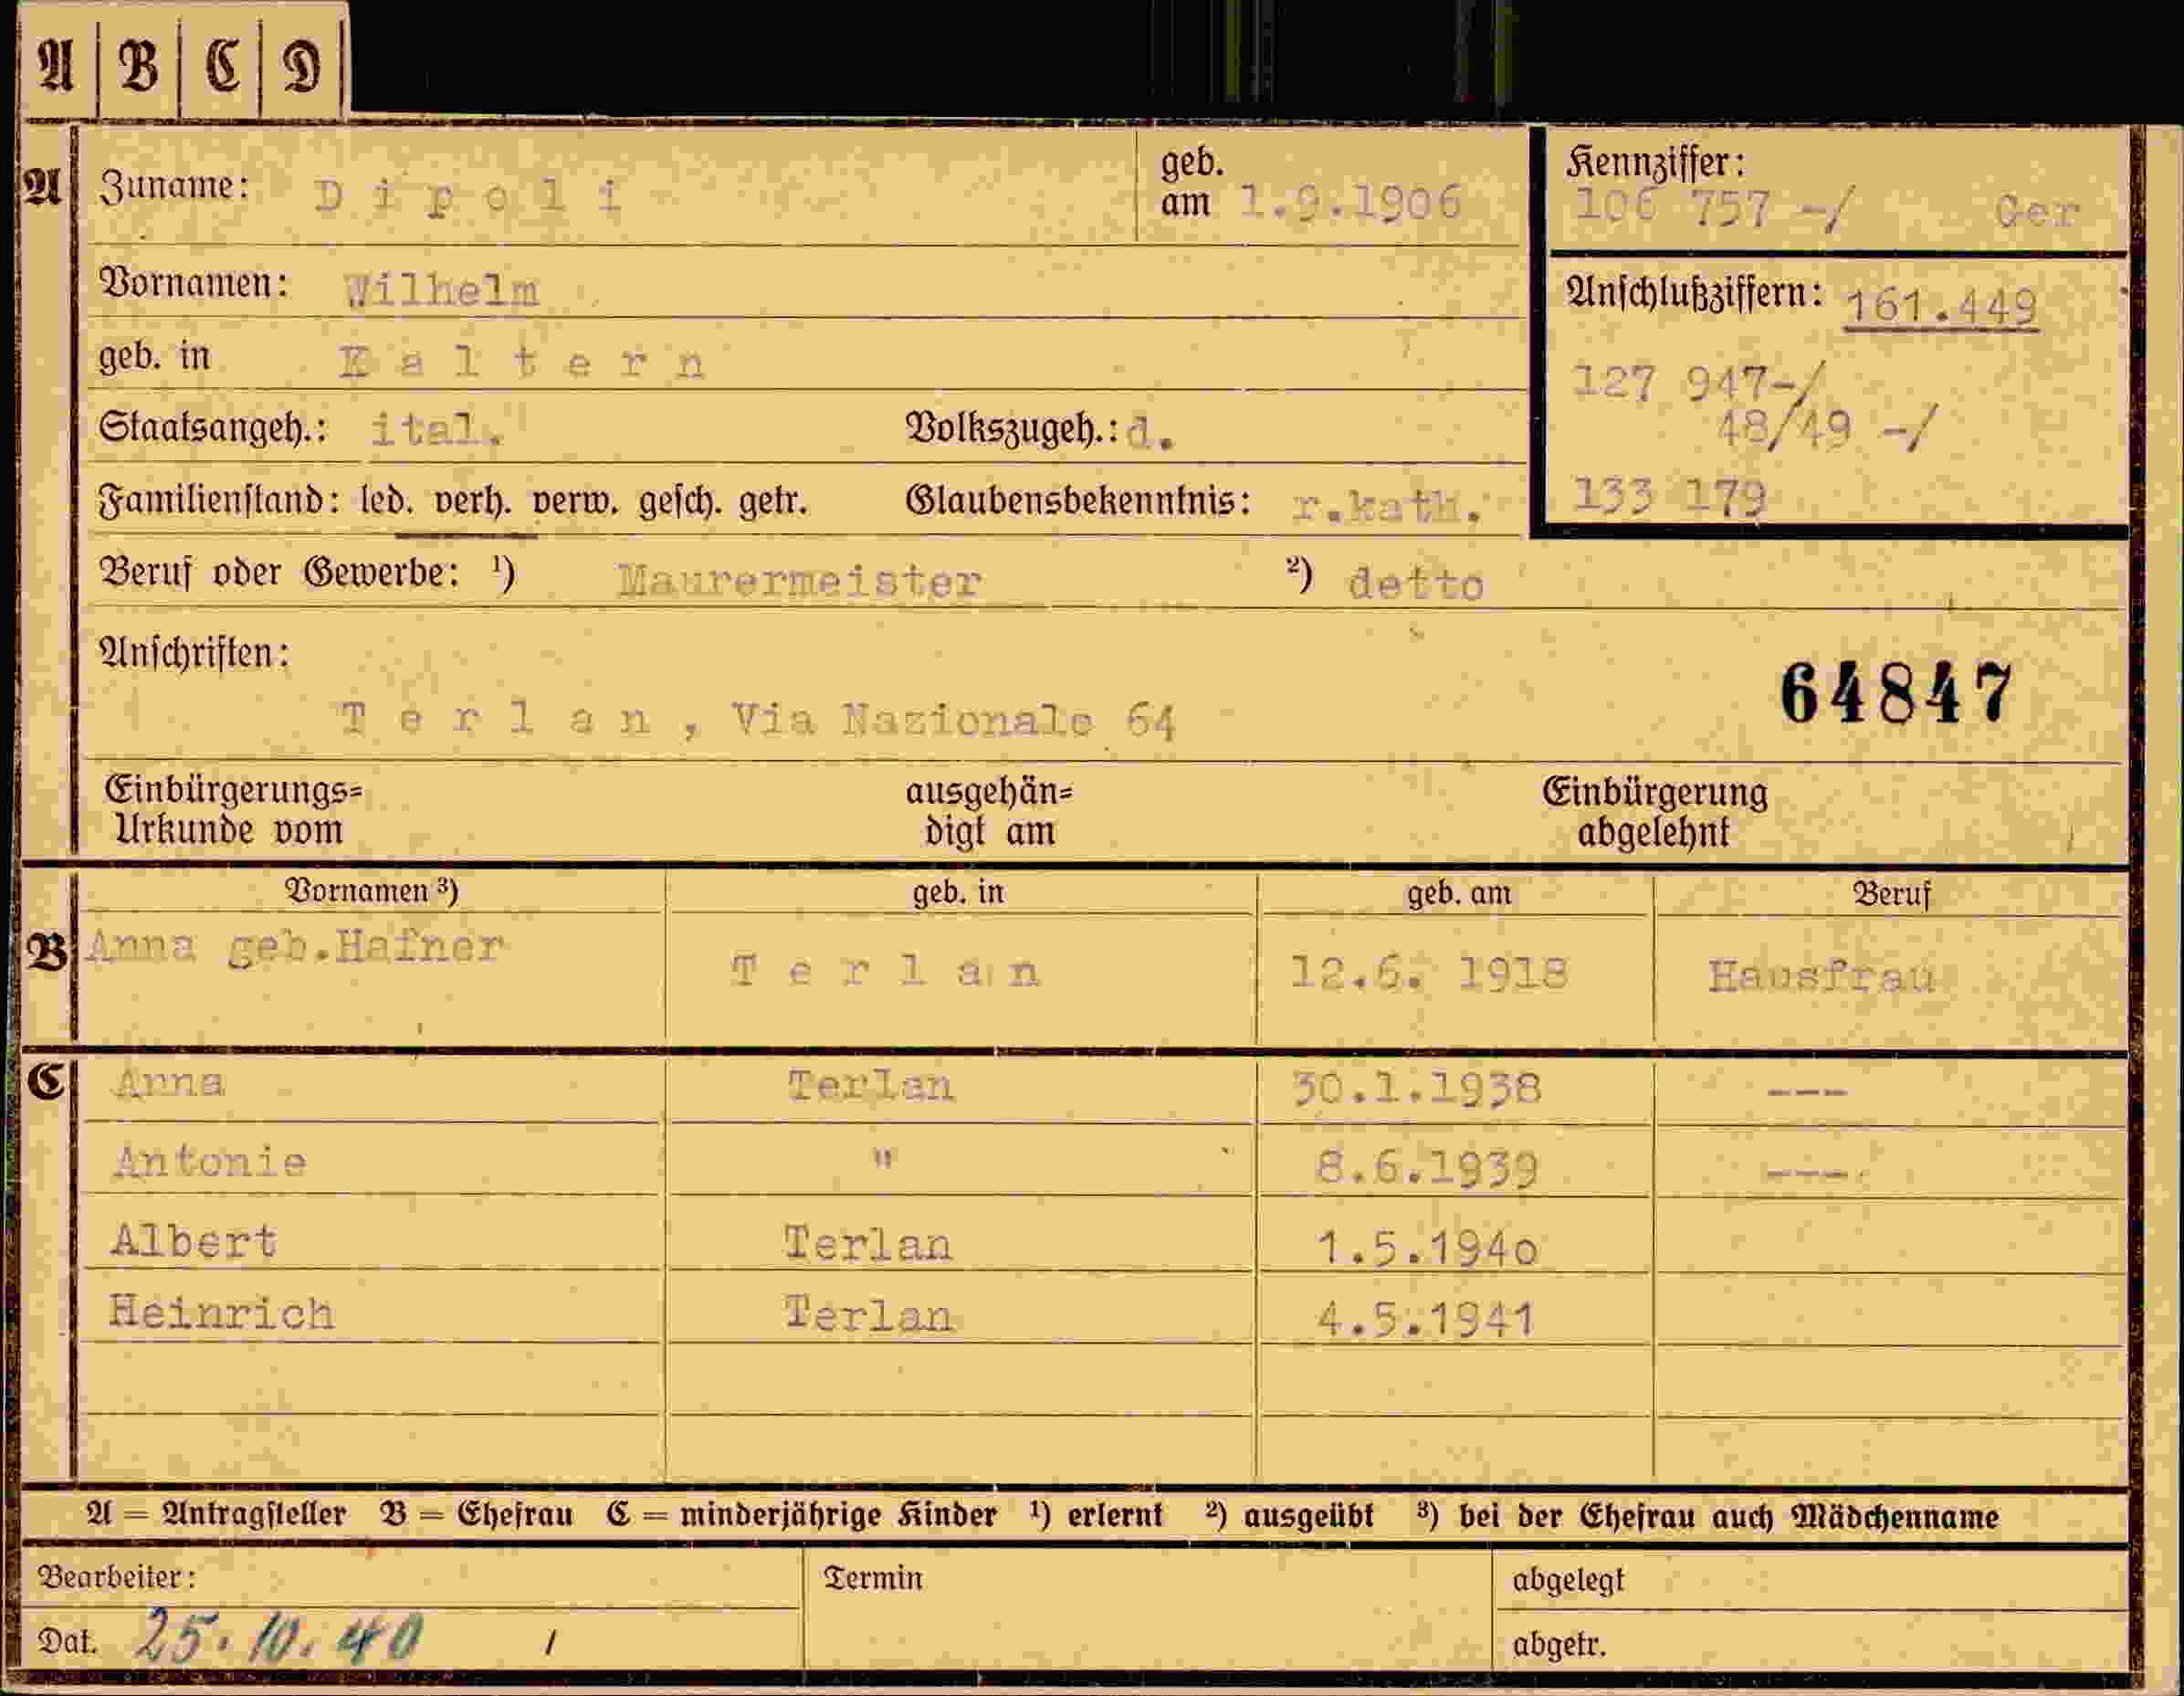 A B C D
A Zuname: Dipoli geb. am 1.9.1906
Kennziffer: 106 757 -/ Ger
Vornamen: Wilhelm
Anschlußziffern: 161.449
geb. in Kaltern
127 947-/
Staatsangeh.: ital. Volkszugeh.: d.
48/49 -/
Familienstand: led. verh. verw. gesch. getr. Glaubensbekenntnis: r.kath.
133 179
Beruf oder Gewerbe: ¹) Maurermeister ²) detto
Anschriften:
64847
Terlan, Via Nazionale 64
Einbürgerungs= ausgehän= Einbürgerung
Urkunde vom digt am abgelehnt
Vornamen ³) geb. in geb. am Beruf
B Anna geb.Hafner Terlan 12.6. 1918 Hausfrau
C Anna Terlan 30.1.1938 ---
Antonie " 8.6.1939 ---
Albert Terlan 1.5.1940
Heinrich Terlan 4.5.1941
A = Antragsteller B = Ehefrau C = minderjährige Kinder ¹) erlernt ²) ausgeübt ³) bei der Ehefrau auch Mädchenname
Bearbeiter: Termin abgelegt
Dat. 25.10.40 / abgetr.